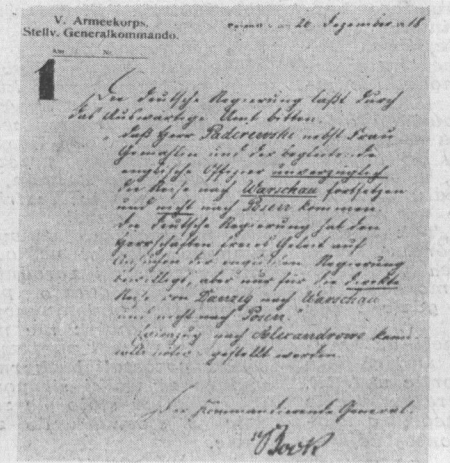 V. Armeekorps.
Stellv. Generalkommando.
Abt. Nr.
26. Dezember 18
1
Die deutsche Regierung läßt durch
das Auswärtige Amt bitten,
daß Herr Paderewski nebst Frau
Gemahlin und der begleitende
englische Offizier unverzüglich
die Reise nach Warschau fortsetzen
und nicht nach Posen kommen.
Die deutsche Regierung hat den
Herrschaften freies Geleit auf
Ansuchen der englischen Regierung
bewilligt, aber nur für die direkte
Reise von Danzig nach Warschau
und nicht nach Posen.
nach Alexandrowo kann
gestellt werden.
Der Kommandierende General.
v Bock